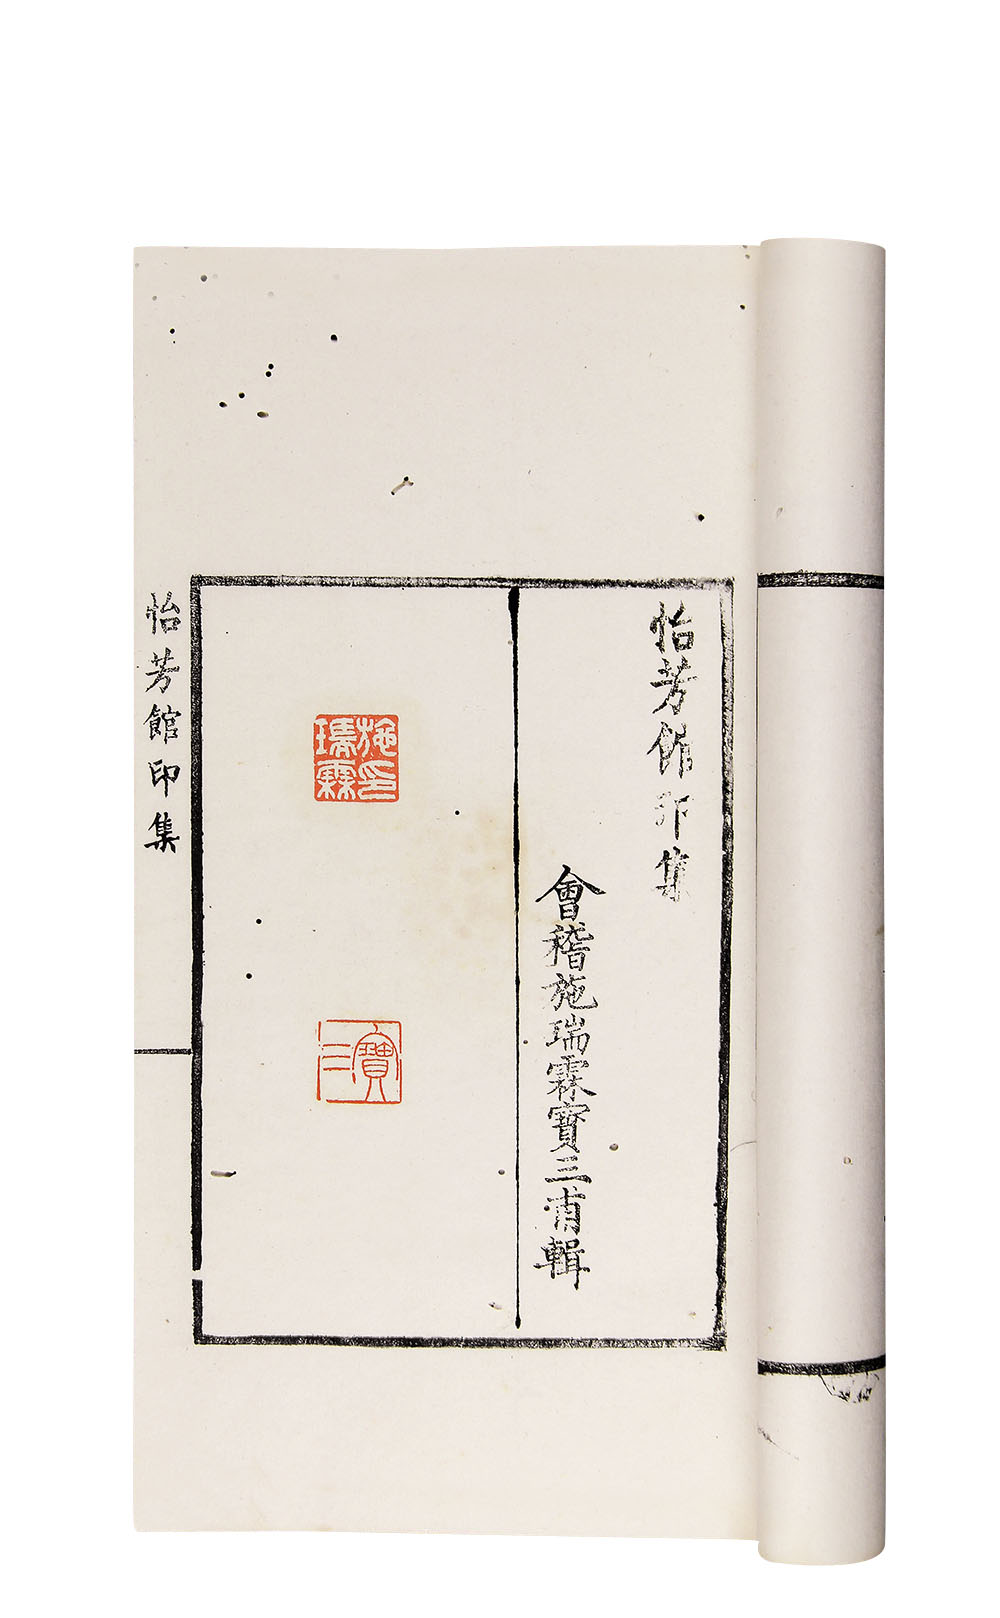 怡芳館印集
會稽施瑞霖寶三甫輯
施印瑞霖
寶三
怡芳館印集